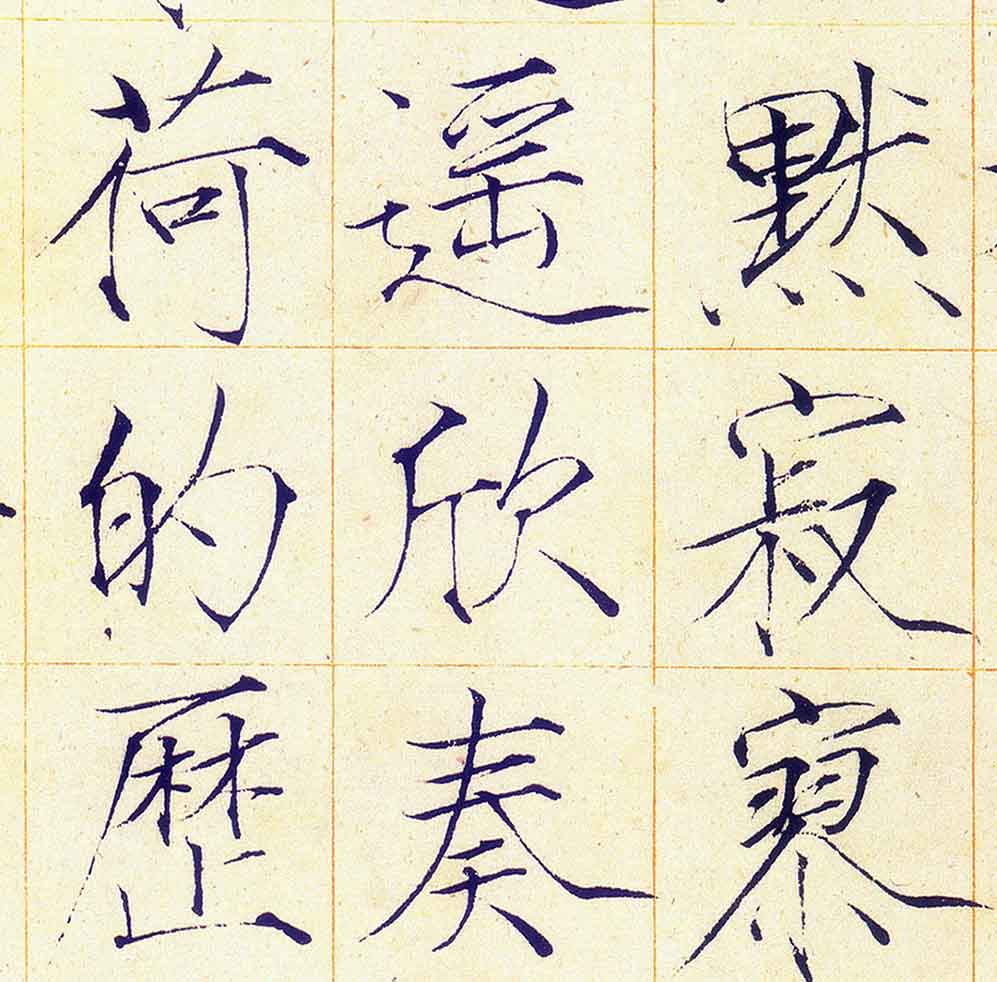 默寂寥
遥欣奏
荷的歷